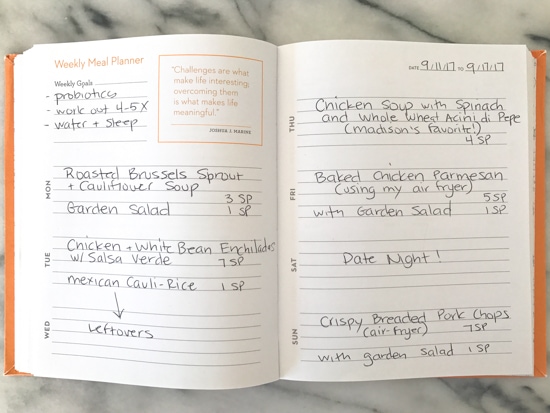 Weekly Meal Planner
Weekly Goals
- probiotics
- work out 4-5X
- water + sleep
"Challenges are what
make life interesting;
overcoming them
is what makes life
meaningful."
JOSHUA J. MARINE
MON
Roasted Brussels Sprout
+ Cauliflower Soup
3 SP
Garden Salad 1 SP
TUE
Chicken + White Bean Enchiladas
w/ Salsa Verde 7 SP
mexican Cauli-Rice 1 SP
WED
Leftovers
DATE 9/11/17 TO 9/17/17
THU
Chicken Soup with Spinach
and Whole Wheat Acini di Pepe
(madison's Favorite!)
4 SP
FRI
Baked Chicken Parmesan
(using my air fryer)
5 SP
with Garden Salad 1 SP
SAT
Date Night!
SUN
Crispy Breaded Pork Chops
(air-fryer) 7 SP
with garden salad 1 SP